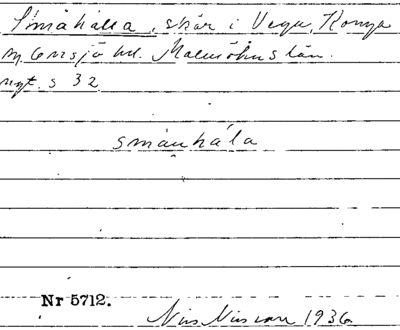 Småhålla, skär i Vega, Konga
sn Onsjö hd. Malmöhus län.
nyt. s 32
smånhála
Nr 5712.
Nils Nilsson 1936